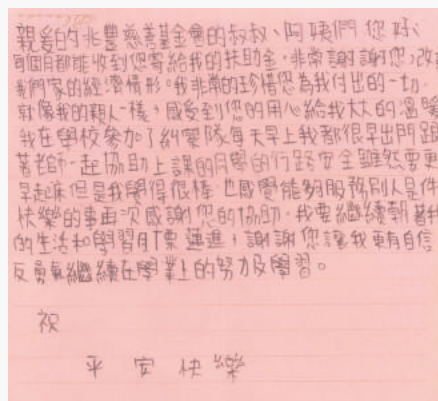 親愛的兆豐慈善基金會的叔叔、阿姨們您好：
每個月都能收到您寄給我的扶助金，非常謝謝您，改
我們家的經濟情形。我非常的珍惜您為我付出的一切，
就像我的親人一樣，感受到您的用心給我大大的溫暖
我在學校參加了糾察隊每天早上我都很早出門跟
著老師一起協助上課的同學的行路安全雖然要更
早起床但是我覺得很棒，也感覺能夠服務別人是件
快樂的事再次感謝您的協助，我要繼續朝著我
的生活和學習目標邁進，謝謝您讓我更有自信
及勇氣繼續在學業上的努力及學習。
祝
平安快樂